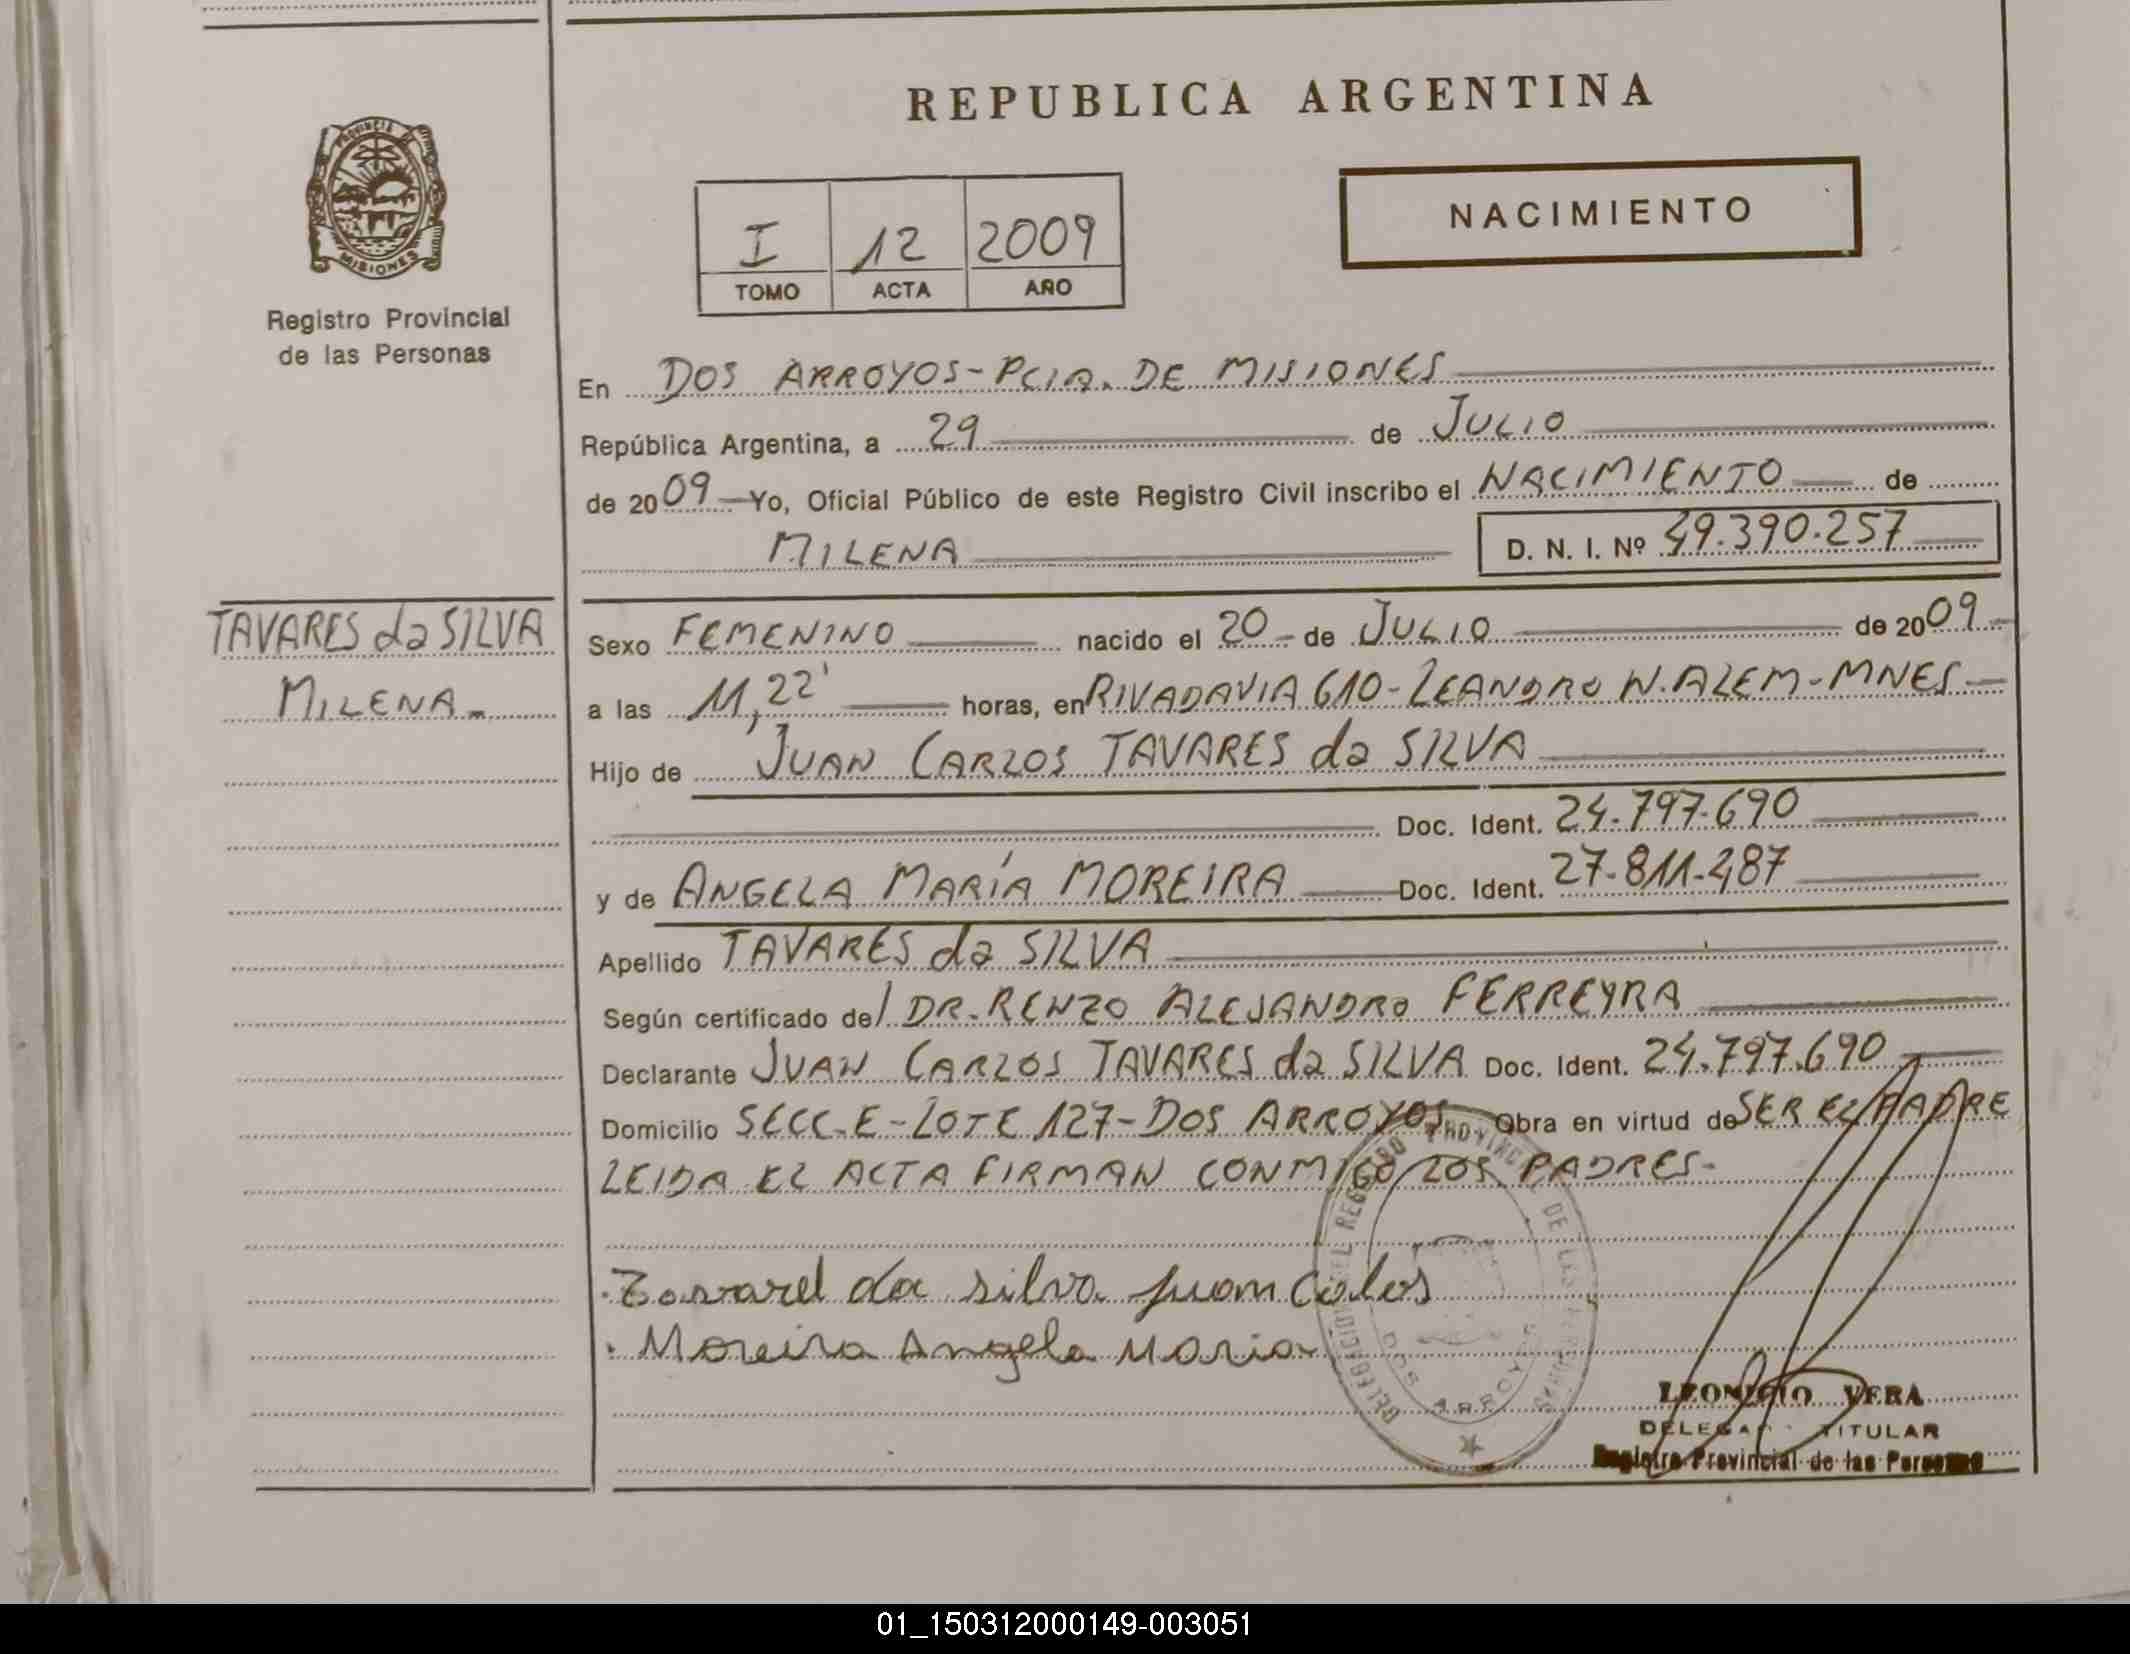 REPUBLICA ARGENTINA
PROVINCIA DE
MISIONES
Registro Provincial
de las Personas
I 12 2009
TOMO ACTA AÑO
NACIMIENTO
En DOS ARROYOS-PCIA. DE MISIONES
República Argentina, a 29 de JULIO
de 2009 Yo, Oficial Público de este Registro Civil inscribo el NACIMIENTO de
MILENA D. N. I. Nº 49.390.257
TAVARES da SILVA
MILENA.
Sexo FEMENINO nacido el 20 de JULIO de 2009
a las 11,22' horas, en RIVADAVIA 610-LEANDRO N. ALEM-MNES
Hijo de JUAN CARLOS TAVARES da SILVA
Doc. Ident. 24.797.690
y de ANGELA MARÍA MOREIRA Doc. Ident. 27.811.487
Apellido TAVARES da SILVA
Según certificado del DR. RENZO ALEJANDRO FERREYRA
Declarante JUAN CARLOS TAVARES da SILVA Doc. Ident. 24.797.690
Domicilio SECC.E-LOTE 127-DOS ARROYOS Obra en virtud de SER EL PADRE
LEIDA EL ACTA FIRMAN CONMIGO LOS PADRES-
Tavarel da silva juan Calos
Moreira Angela Maria
DELEGACION DEL REGISTRO PROVINCIAL DE LAS PERSONAS
DOS ARROYOS
LEONICIO VERA
DELEGADO TITULAR
Registro Provincial de las Personas
01_150312000149-003051